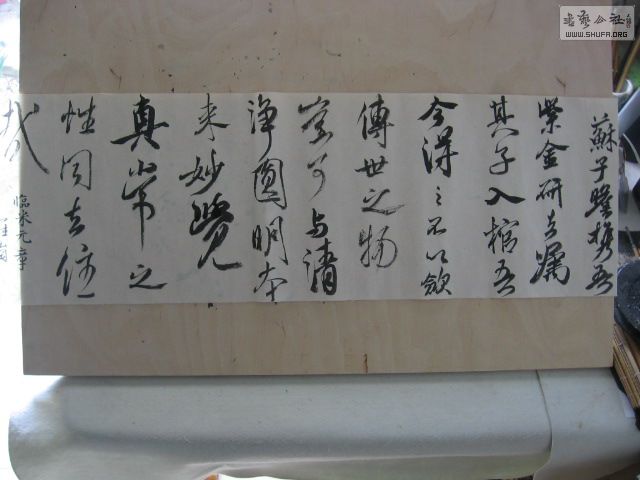 蘇子瞻携吾
紫金研去嘱
其子入棺吾
今得之不以歛
傳世之物
豈可与清
淨圓明本
来妙覺
真常之
性同去住
哉
臨米元章
書藝公社
WWW.SHUFA.ORG